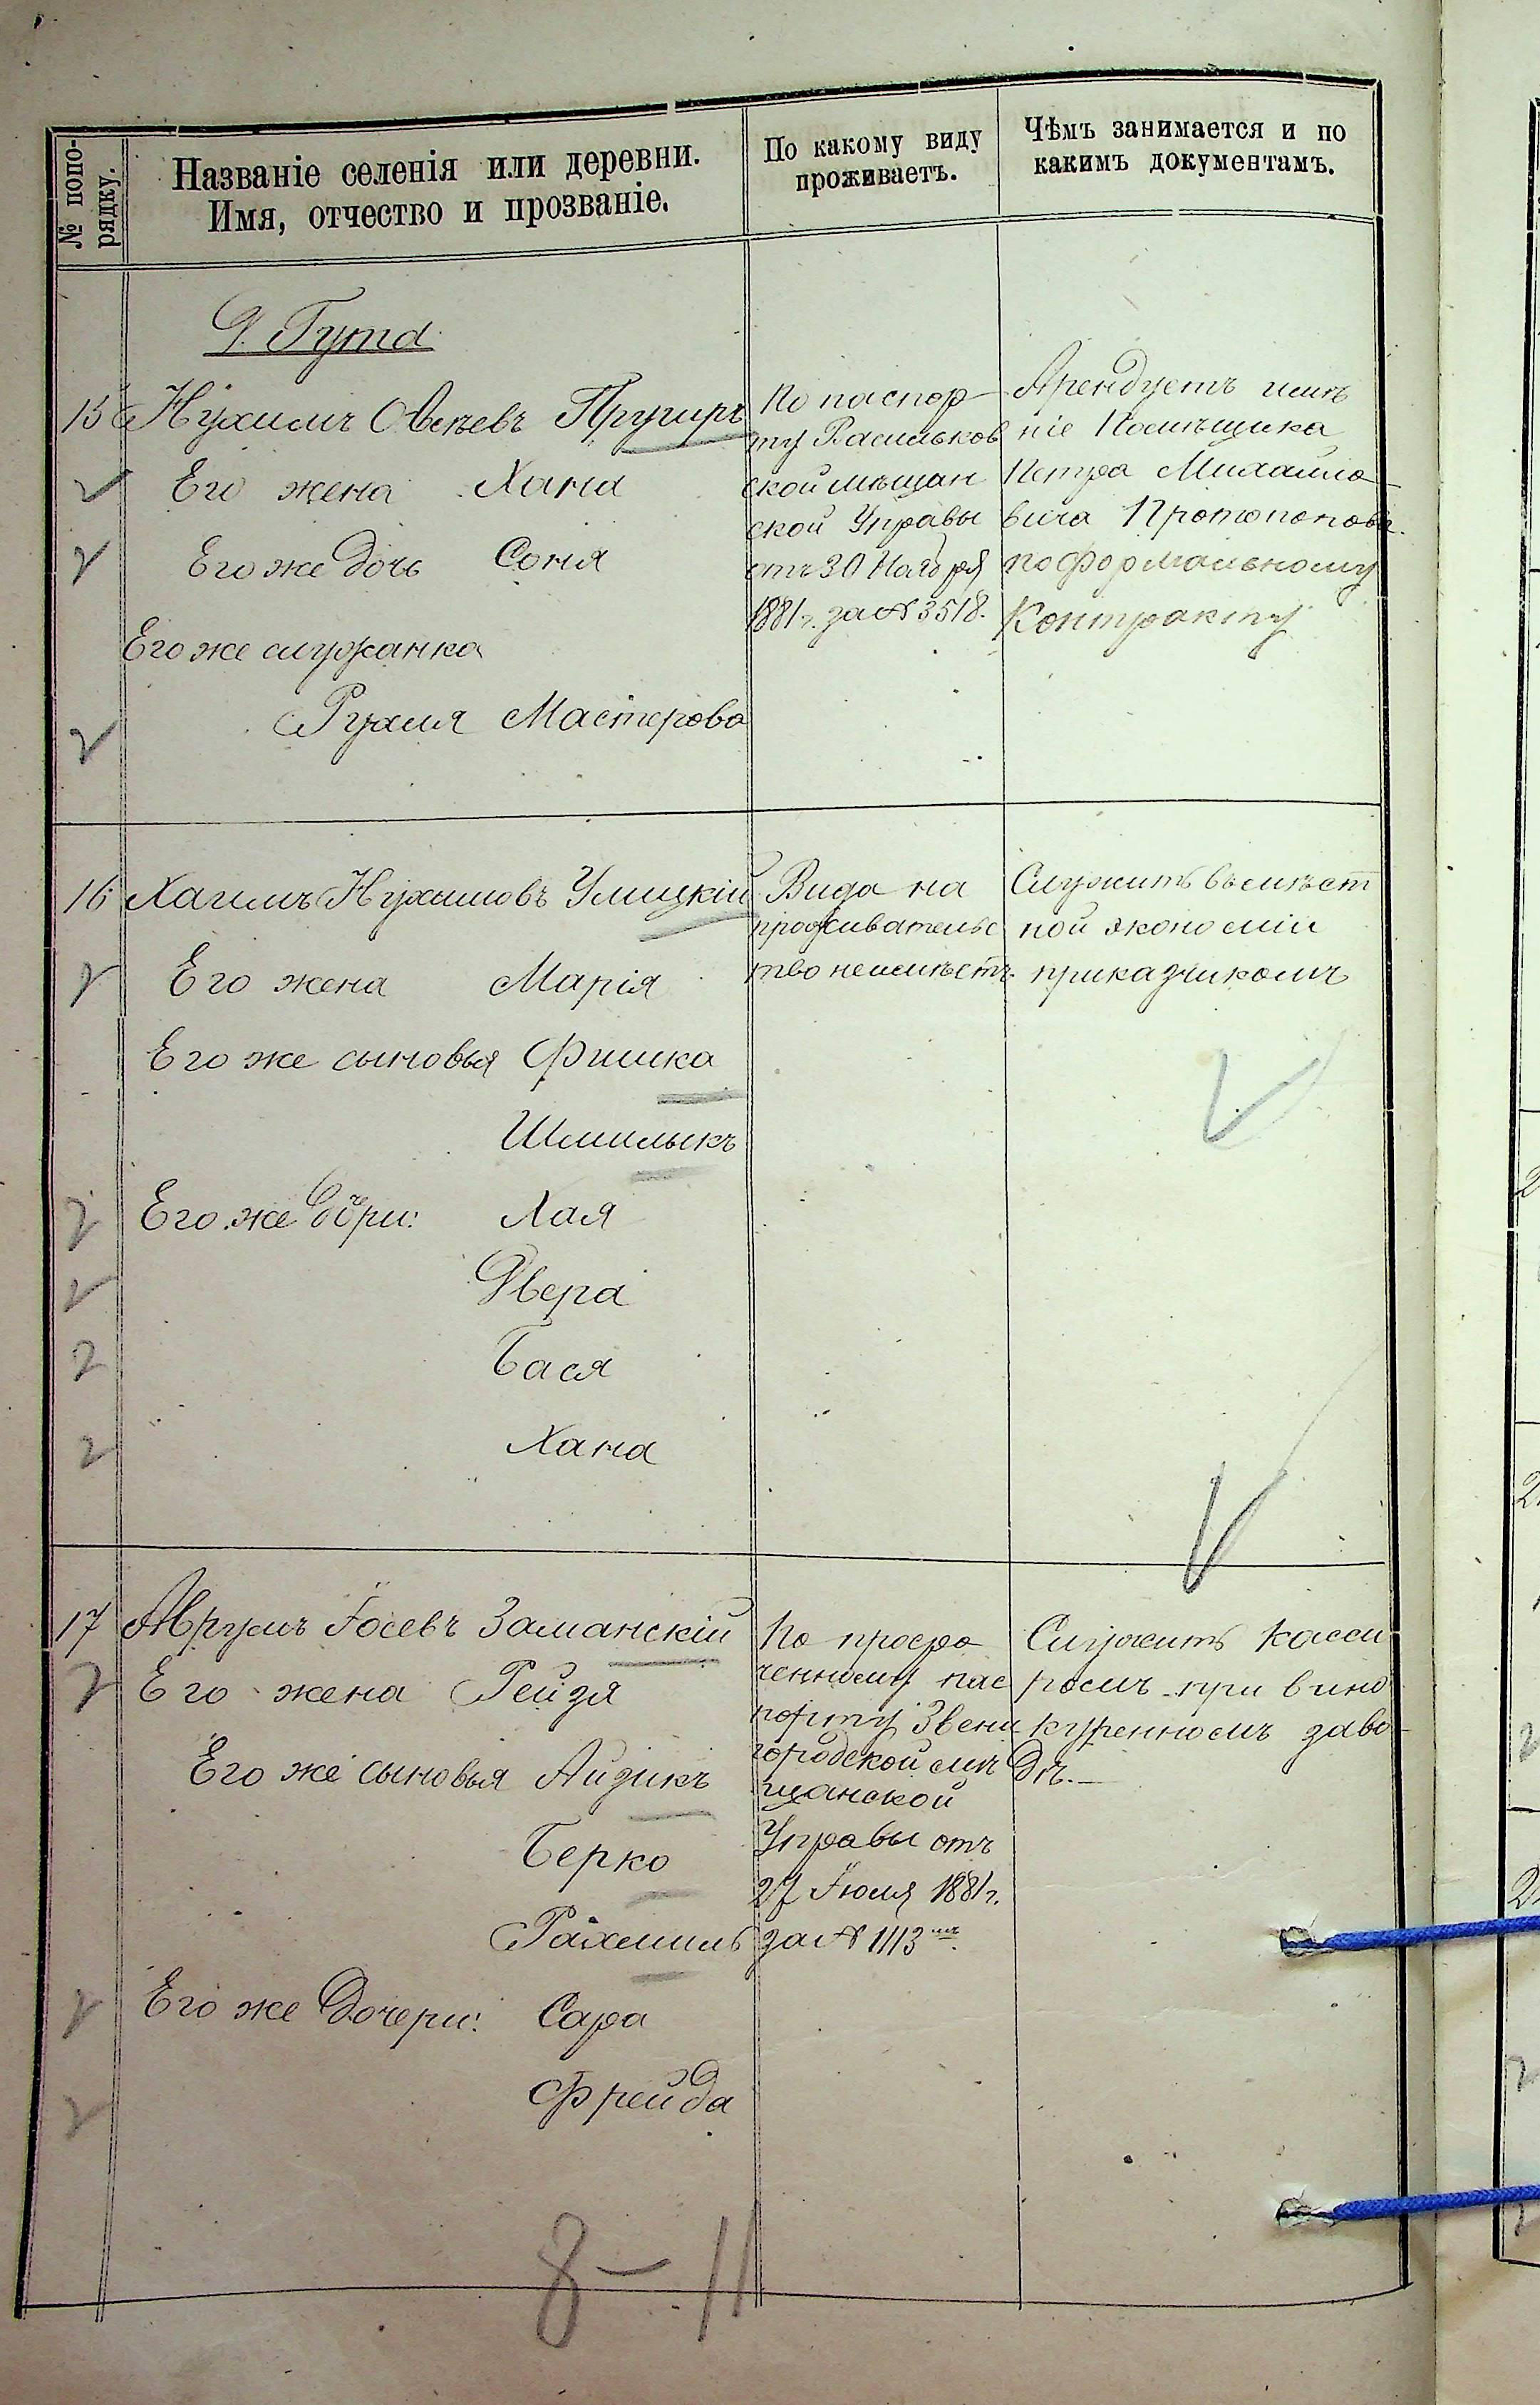 № попо-
рядку.
Названіе селенія или деревни.
Имя, отчество и прозваніе.
По какому виду
проживаетъ.
Чѣмъ занимается и по
какимъ документамъ.
Д. Гута
15 Нухимъ Овсѣевъ
Его жена Хана
Его же дочь Соня
Его же служанка
Рухля Мастерова
По паспор-
ту Васильков
ской мѣщан
ской Управы
отъ 30 Ноября
1881 г. за № 3518.
Арендуетъ имѣ
ніе Помѣщика
Петра Михайло-
вича Протопопова
по формальному
Контракту
16 Хаимъ Нухимовъ Улицкій
Его жена Марія
Его же сыновья Фишка
Шмилыкъ
Его же дочри: Хая
Двера
Бася
Хана
Вида на
проживательс
тво неимѣетъ
Служитъ вымѣст
ной экономіи
приказчикомъ
17 Аврумъ Іосевъ Заманскій
Его жена Рейзя
Его же сыновья Айзикъ
Берко
Рахмиль
Его же дочери: Сара
Фрейда
По просро
ченному пас
порту Звени
городской мѣ
щанской
Управы отъ
27 Іюля 1881 г.
за № 1113
Служитъ Касси
ромъ при вино
куренномъ заво-
дѣ.—
8 — 11